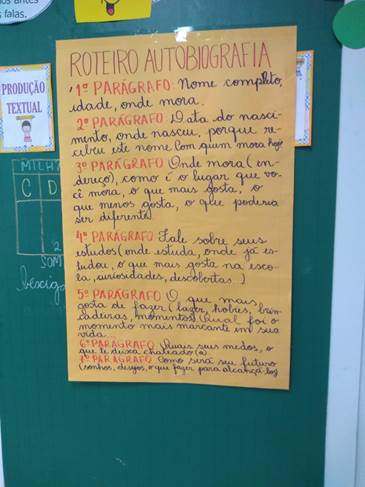 s antes
s falas.
PRODUÇÃO
TEXTUAL
ROTEIRO AUTOBIOGRAFIA
1º PARÁGRAFO: Nome completo,
idade, onde mora.
2º PARÁGRAFO: Data do nasci-
mento, onde nasceu, porque re-
cebeu este nome. Com quem mora hoje
3º PARÁGRAFO Onde mora (en-
dereço), como é o lugar que vo-
cê mora, o que mais gosta, o
que menos gosta, o que poderia
ser diferente)
4º PARÁGRAFO Fale sobre seus
estudos (onde estuda, onde já es-
tudou, o que mais gosta na esco-
la, curiosidades, descobertas.)
5º PARÁGRAFO O que mais
gosta de fazer (lazer, hobies, brin-
cadeiras, momentos) Qual foi o
momento mais marcante em sua
vida.
6º PARÁGRAFO Quais seus medos, o
que te deixa chateado(a)
7º PARÁGRAFO Como será seu futuro
(sonhos, desejos, o que fazer para alcançá-los)
C D
2
SOM